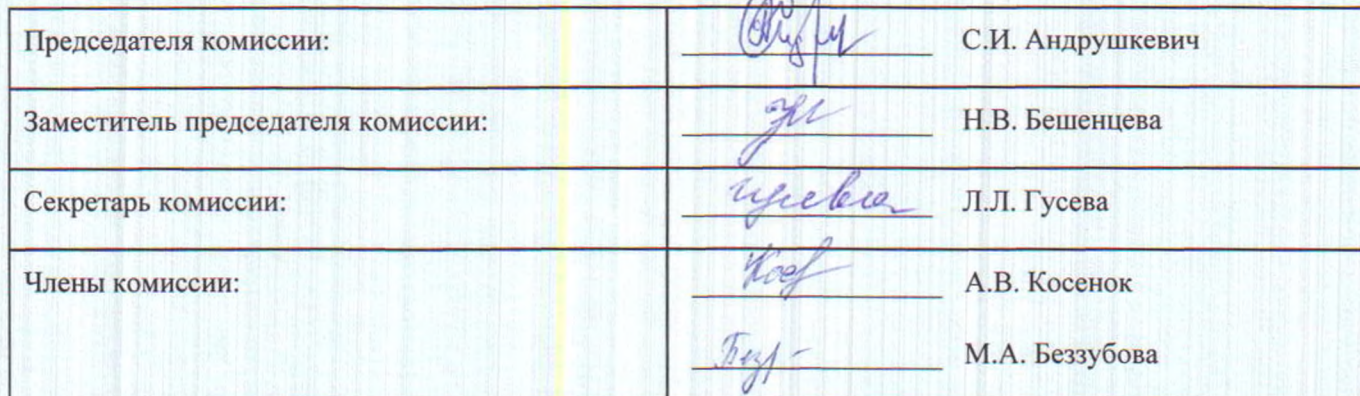 Председателя комиссии: С.И. Андрушкевич
Заместитель председателя комиссии: Н.В. Бешенцева
Секретарь комиссии: Гусева Л.Л. Гусева
Члены комиссии: А.В. Косенок
М.А. Беззубова